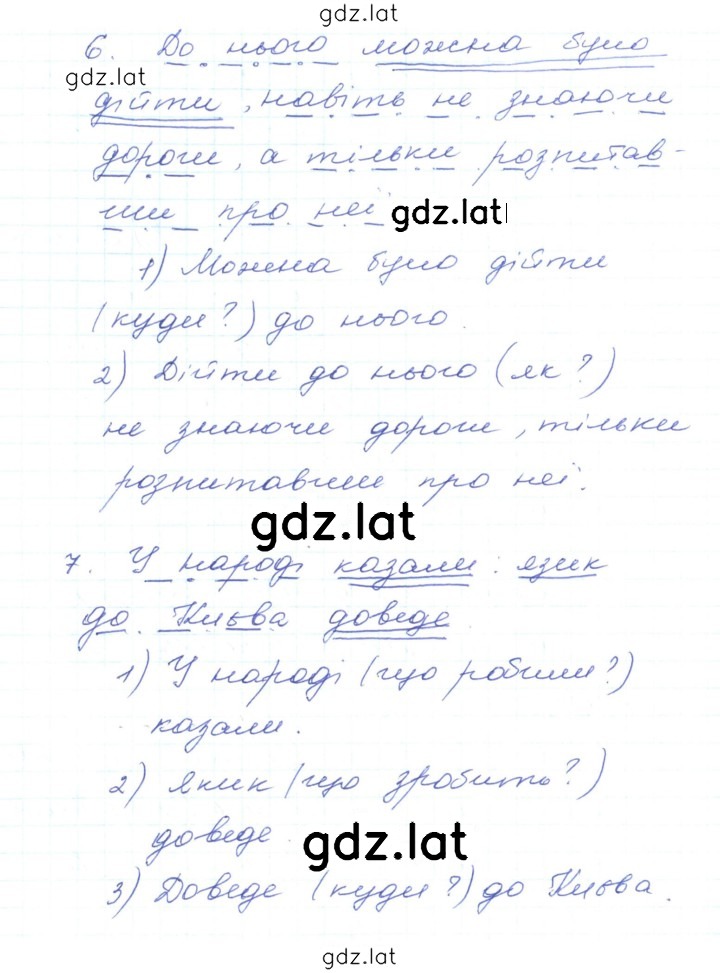 gdz.lat
6. До нього можна було
gdz.lat
дійти, навіть не знаючи
дороги, а тільки розпитав-
ши про неї gdz.lat
1) Можна було дійти
(куди?) до нього.
2) Дійти до нього (як?)
не знаючи дороги, тільки
розпитавши про неї.
gdz.lat
7. У народі казали: язик
до Києва доведе
1) У народі (що робили?)
казали.
2) Якик (що зробить?)
доведе.
gdz.lat
3) Доведе (куди?) до Києва.
gdz.lat